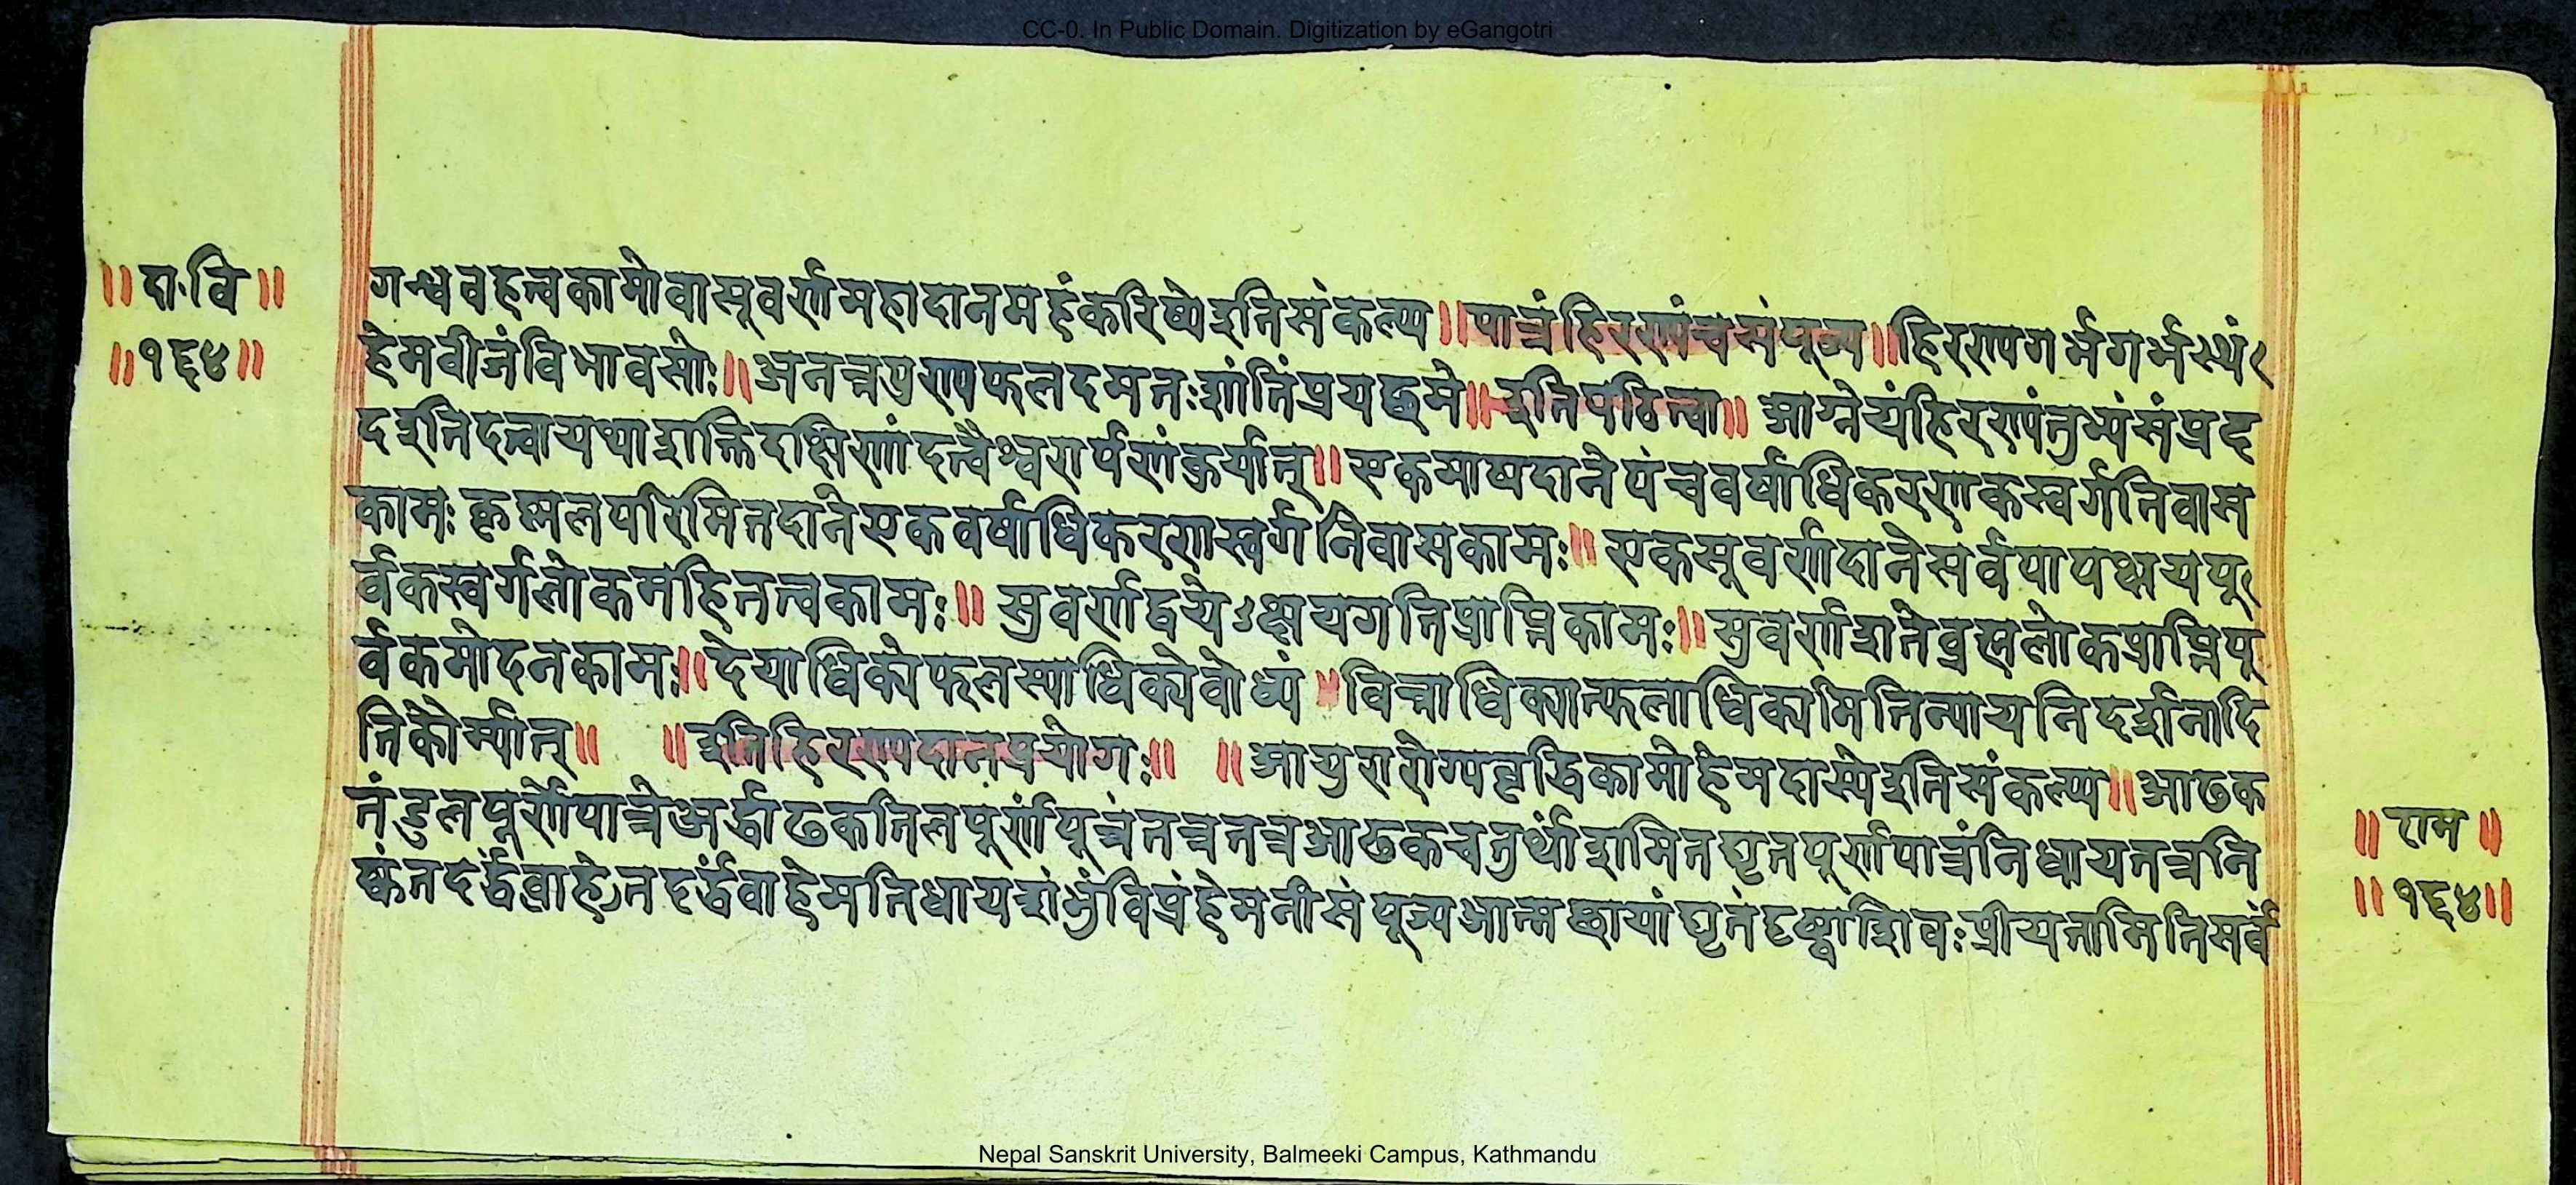 CC-0. In Public Domain. Digitization by eGangotri
॥दा.वि॥
॥१६४॥
गन्धवहत्वकामोवासूवर्णमहादानमहंकरिष्येइतिसंकल्प्य॥पात्रंहिरण्यंचसंपूज्य॥हिरण्यगर्भगर्भस्थं
हेमवीजंविभावसोः॥अनन्तपुण्यफलदमतःशांतिंप्रयछमे॥इतिपठित्वा॥आग्नेयंहिरण्यंतुभ्यंसंप्रद
ददइतिदत्वायथाशक्तिदक्षिणांदत्वैश्वरार्पणंकुर्यात्॥एकमाषदानेपंचवर्षाधिकरणकस्वर्गनिवास
कामःकृष्णलपरिमितदानेएकवर्षाधिकरणस्वर्गनिवासकामः॥एकसूवर्णदानेसर्वपापक्षयपू
र्वकस्वर्गलोकमहितत्वकामः॥सुवर्णद्वयेऽक्षयगतिप्राप्तिकामः॥सुवर्णदानेब्रह्मलोकप्राप्तिपू
र्वकमोदनकामः॥देयाधिक्येफलस्याधिक्येवोध्यं॥वित्ताधिक्यात्फलाधिक्यमितिन्यायनिदर्शनादि
तिकौर्म्यात्॥ ॥इतिहिरण्यदानप्रयोगः॥ ॥आयुरारोग्यवृद्धिकामोहेमदास्येइतिसंकल्प्य॥आढक
तंडुलपूर्णेपात्रेअर्द्धाढकतिलपूर्णंपूत्रंतत्रतत्रआढकचतुर्थांशमितघृतपूर्णपात्रंनिधायतत्रनि
ष्कंतदर्द्धंवाहेमनिधायशंभुंविप्रंहेमनीसंपूज्यआत्मछायांघृतेदृष्ट्वाशिवःप्रीयतामितिसर्वं
॥राम॥
॥१६४॥
Nepal Sanskrit University, Balmeeki Campus, Kathmandu